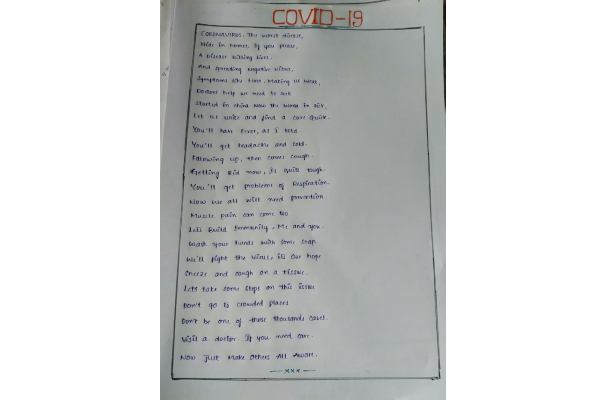 COVID-19
CORONAVIRUS. The worst disease,
Hide in homes, If you please,
A Disease killing lives.
And spreading negative vibes,
Symptoms like time, Making us weak,
Doctors help we need to seek
Started in china Now the world is sick,
Let us unite and find a cure quick.
You'll have Fever, as I told
You'll get headache and cold.
Following up, then comes cough.
Getting Rid now, is quite tough.
You'll get problems of Respiration.
Now we all will need prevention
Muscle pain can come too
Lets Build Immunity, Me and you.
Wash your hands with some soap
We'll fight the virus, its our hope
Sneeze and cough on a tissue.
Lets take some steps on this issue
Don't go to crowded places
Don't be one of those thousands cases.
Visit a doctor. If you need care.
Now Just Make Others All Aware.
xxx